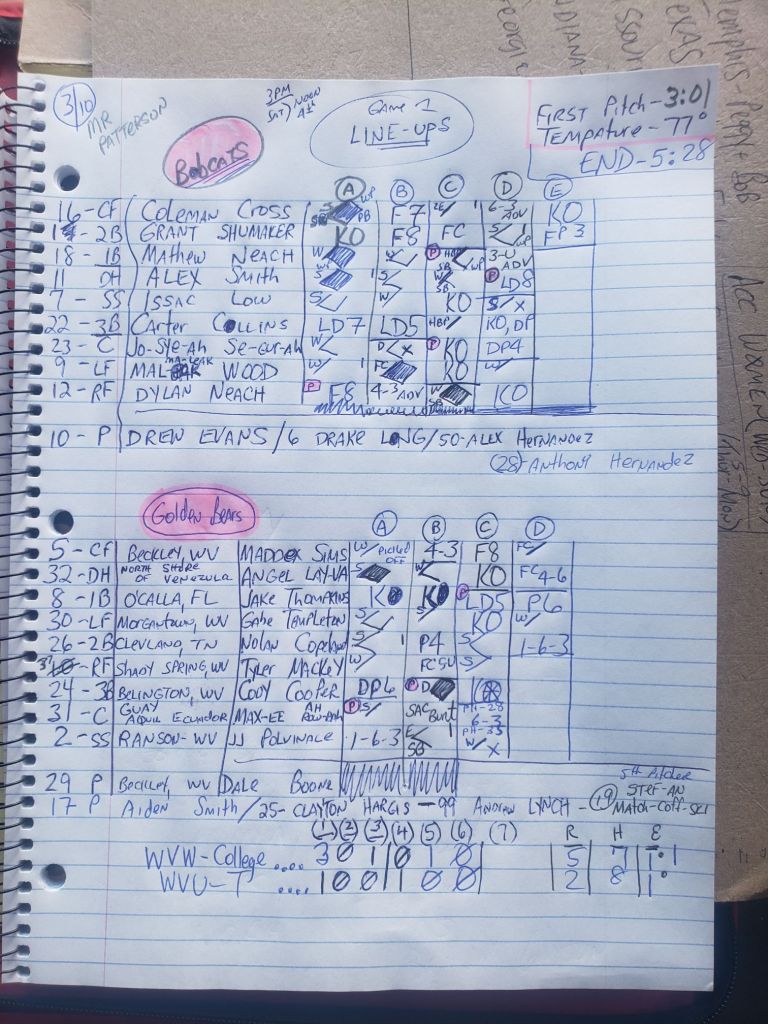 3/10
MR PATTERSON
3PM
SAT) NOON
GAME 1
LINE-UPS
FIRST Pitch - 3:01
TEMPATURE - 77°
END - 5:28
BOBCATS
A B C D E
16 - CF COLEMAN CROSS S SB WP PB F7 6-3 ADV KO
2B GRANT SHUMAKER KO F8 FC S WP FP3
18 - 1B MATHEW NEACH W W P HBP WP 3-U ADV
11 DH ALEX SMITH S W SB P LD8
7 - SS ISSAC LOW S W KO S/X
22 - 3B CARTER COLLINS LD7 LD5 HBP KO, DP
23 - C JO-SYE-AH SE-GUR-AH W D X P KO DP4
9 - LF MAL WOOD W FC KO W
12 - RF DYLAN NEACH P F8 4-3 ADV W SB KO
10 - P DREW EVANS / 6 DRAKE LONG / 50 - ALEX HERNANDEZ
(28) ANTHONY HERNANDEZ
Golden Bears
A B C D
5 - CF BECKLEY, WV MADDOX SIMS W PICKED OFF 4-3 F8 FC
32 - DH NORTH SHORE OF VENEZULA ANGEL LAY-VA S W KO FC 4-6
8 - 1B O'CALLA, FL JAKE THOMPKINS KO KO P LD5 P6
30 - LF MORGANTOWN, WV GABE TEMPLETON S KO W
26 - 2B CLEVLAND, TN NOLAN COPELAND S P4 S 1-6-3
RF SHADY SPRING, WV TYLER MACKEY W FC5U S
24 - 3B BELINGTON, WV CODY COOPER DP6 P D
31 - C GUAY AQUIL ECUADOR MAX-EE P S SAC BUNT PH-28 6-3
2 - SS RANSON - WV JJ POLVINALE 1-6-3 E SB W X
29 P BECKLEY, WV DALE BOONE
5TH PITCHER
17 P AIDEN SMITH / 25 - CLAYTON HARGIS - 99 ANDREW LYNCH - 19 STEF-AN
MATCH-COFF-SKI
(1) (2) (3) (4) (5) (6) (7) R H E
WVW - COLLEGE .... 3 0 1 0 1 0 5 7 1
WVU - T .... 1 0 0 1 0 0 2 8 1